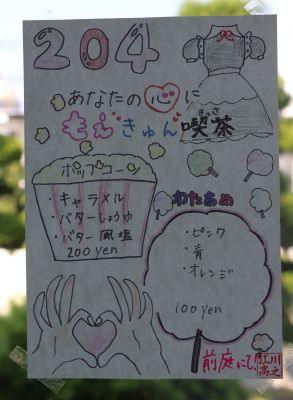 204
あなたの心に
もえきゅん喫茶
きっさ
ポップコーン
・キャラメル
・バターしょうゆ
・バター風塩
200yen
わたあめ
・ピンク
・青
・オレンジ
100yen
前庭にて!